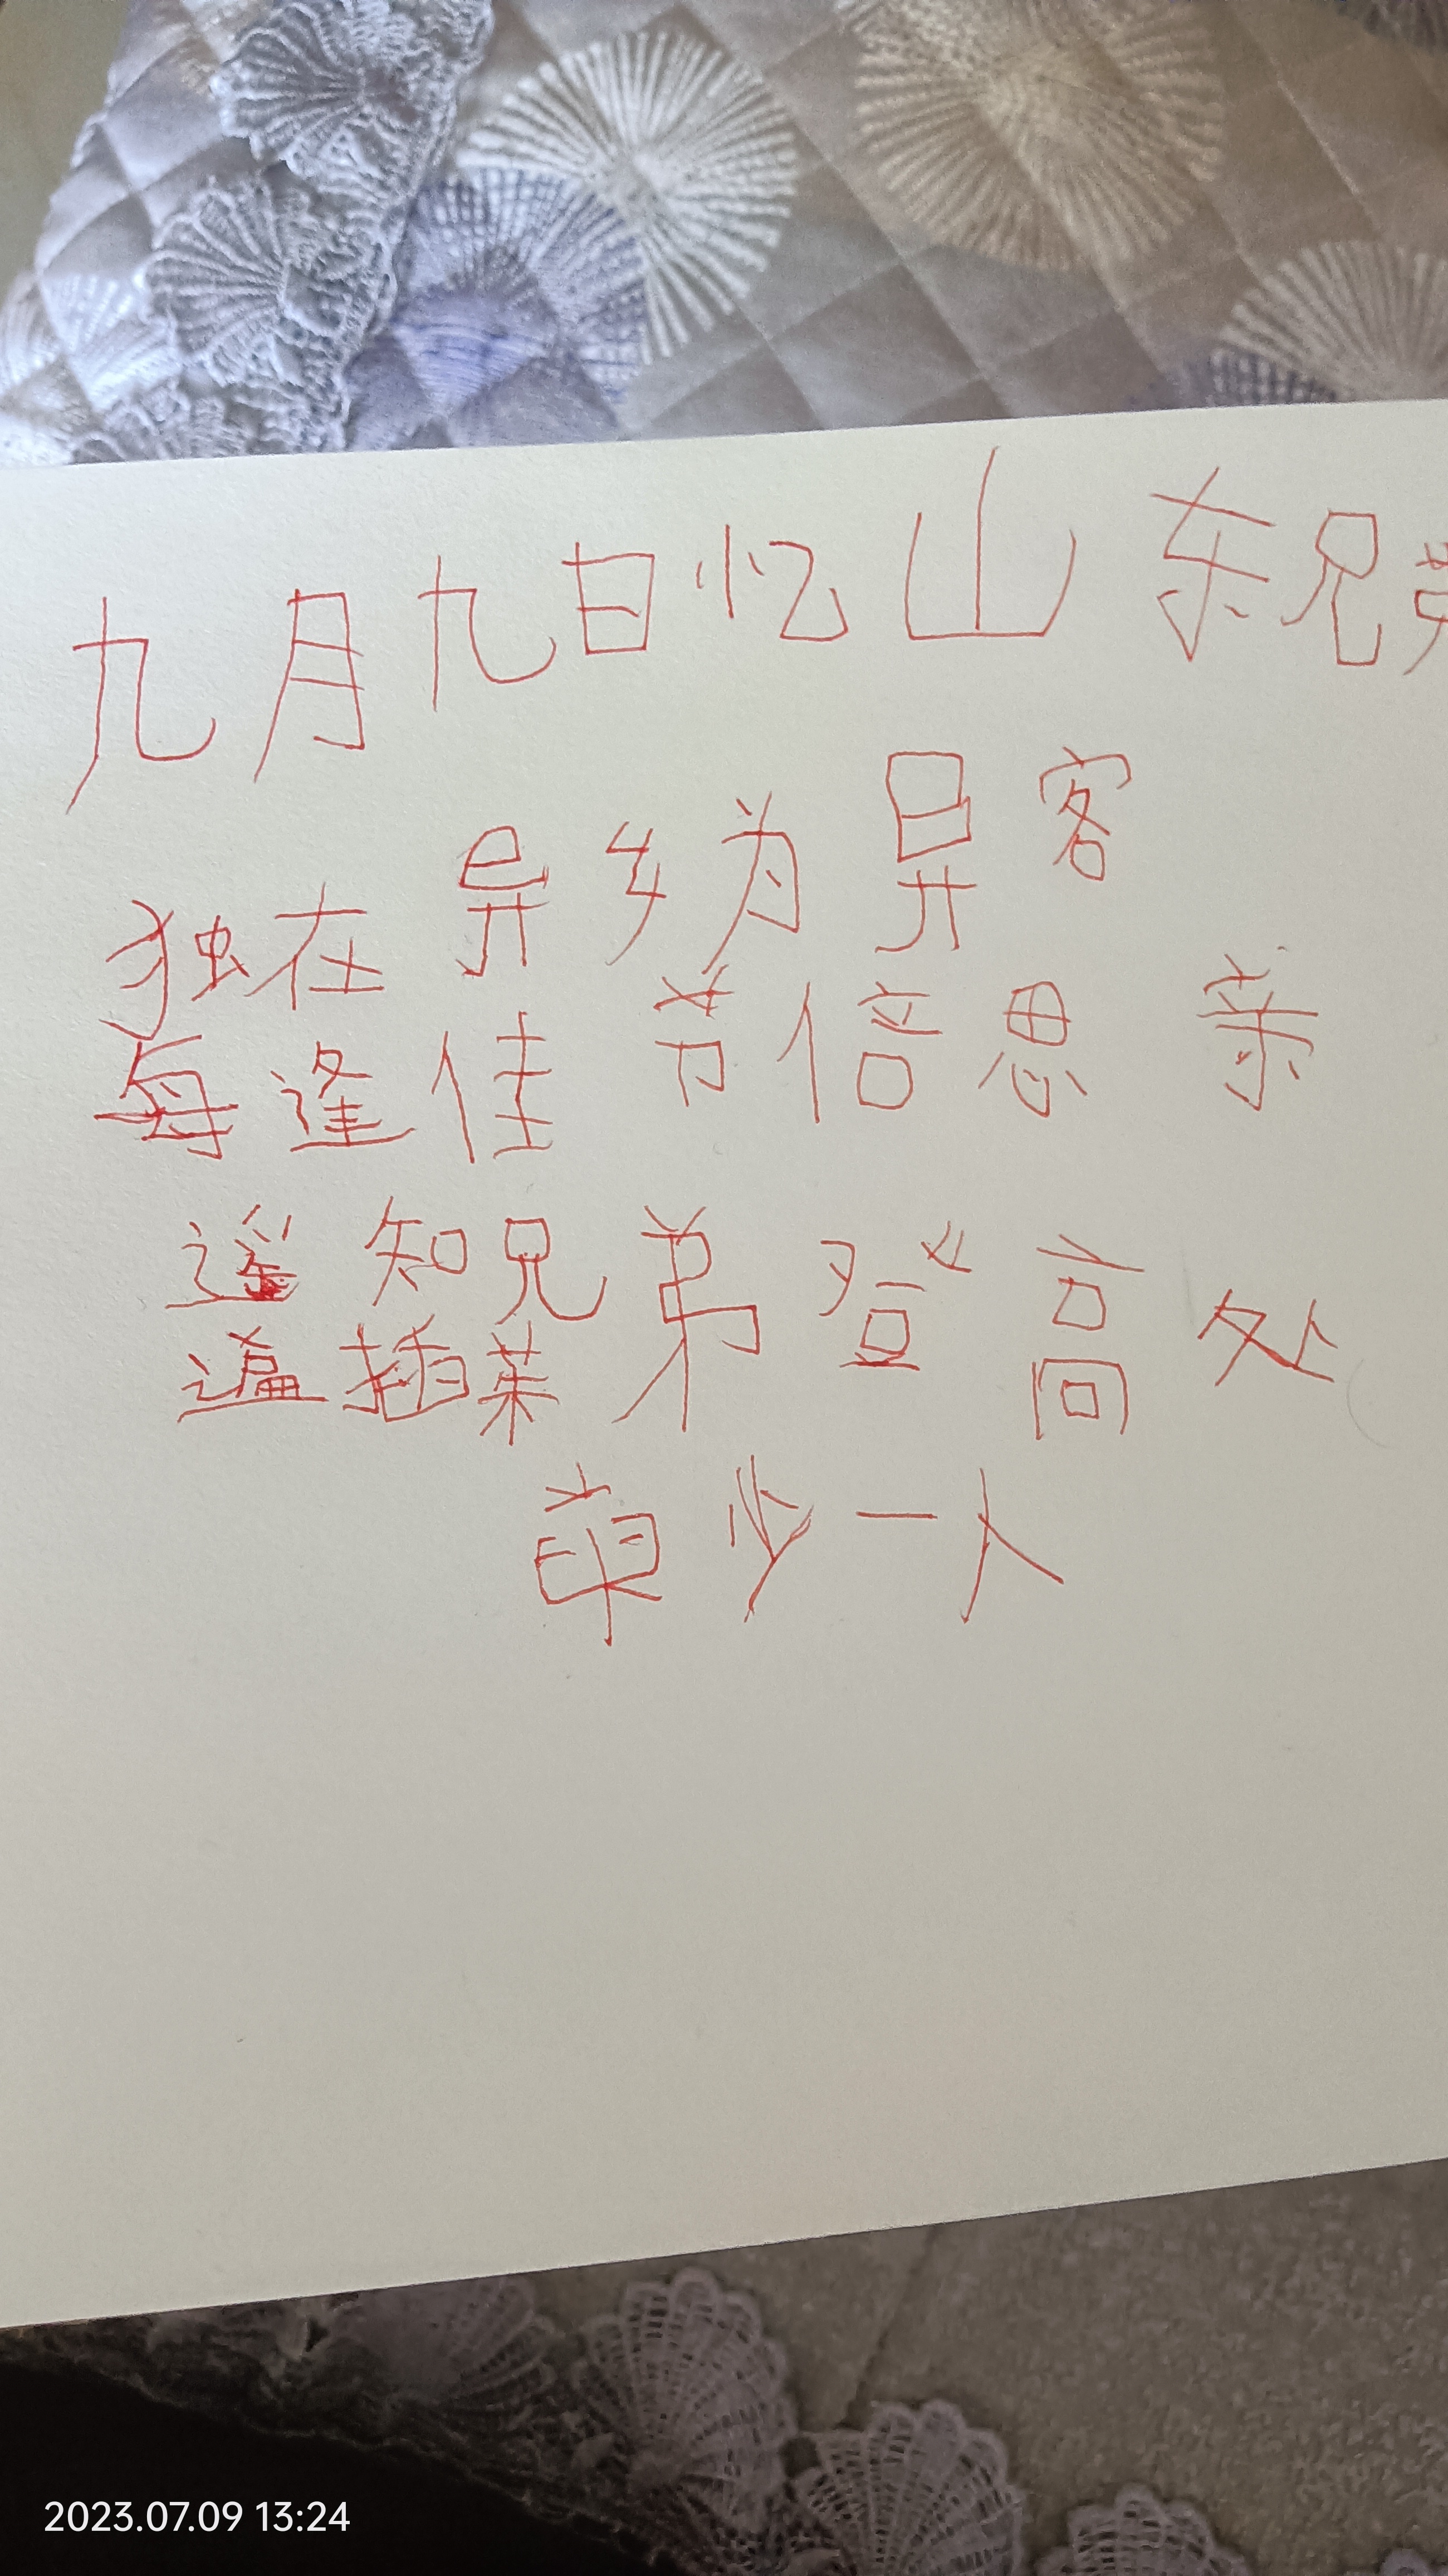 九月九日忆山东兄弟
独在异乡为异客
每逢佳节倍思亲
遥知兄弟登高处
遍插茱
萸少一人
2023.07.09 13:24